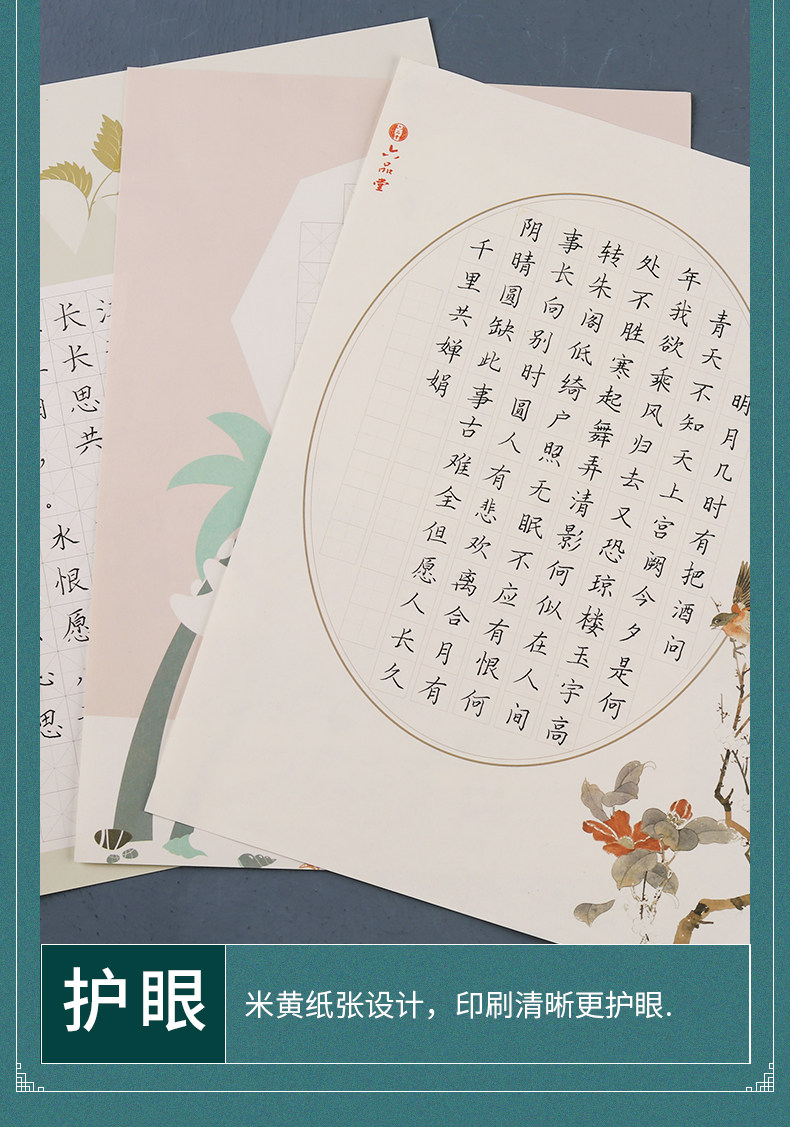 六品堂
明月几时有把酒问
青天不知天上宫阙今夕是何
年我欲乘风归去又恐琼楼玉宇高
处不胜寒起舞弄清影何似在人间
转朱阁低绮户照无眠不应有恨何
事长向别时圆人有悲欢离合月有
阴晴圆缺此事古难全但愿人长久
千里共婵娟
长
长
思
共
。
水
恨
愿
思
护眼
米黄纸张设计，印刷清晰更护眼.